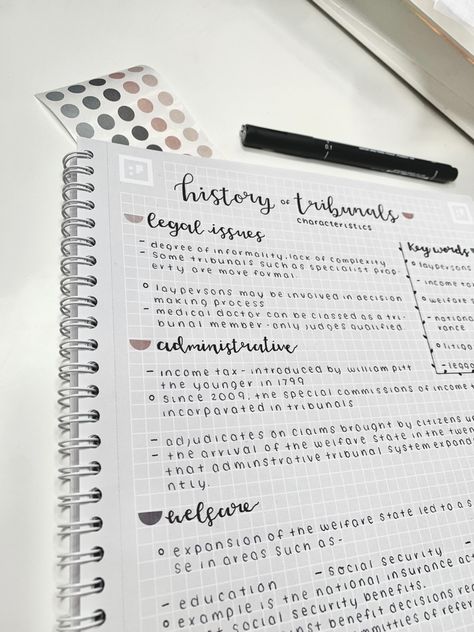 0.1
history of tribunals
characteristics
legal issues
- degree of informality, lack of complexity
- some tribunals such as specialist prop-
erty are more formal.
o laypersons may be involved in decision
making process
- medical doctor can be classed as a tri-
bunal member - only judges qualified.
administrative
- income tax - introduced by william pitt
the younger in 1799
o since 2009, the special commissions of income
incorporated in tribunals
- adjudicates on claims brought by citizens
- the arrival of the welfare state in the
that adminstrative tribunal system
ntly.
welfare
o expansion of the welfare state led to a
se in areas such as -
- education
- social security
o example is the national insurance
social security benefits.
benefit decisions
of
Key words
o laypersons
- income
o welfare
- national
rance
o litiga
- legal